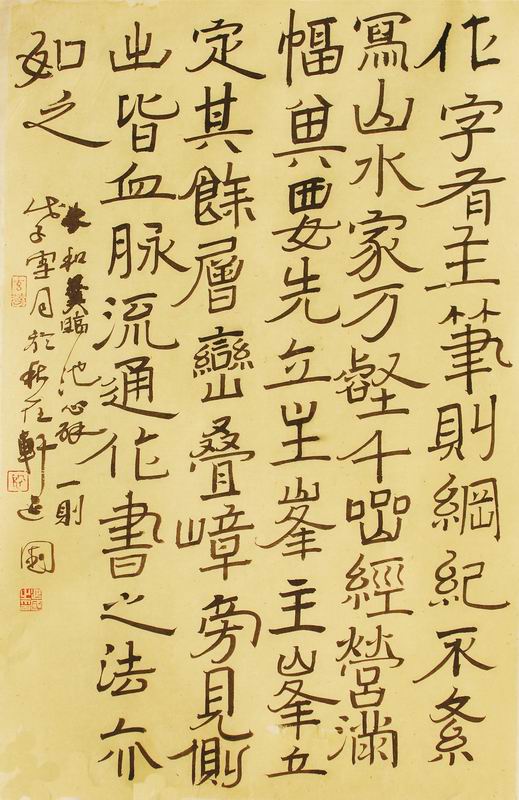 作字有主筆則綱紀不紊
寫山水家万壑千喦經營滿
幅要先立主峯主峯立
定其餘層巒疊嶂旁見側
出皆血脉流通作書之法亦
如之
朱和羹臨池心解一則
戊子雪月於軒